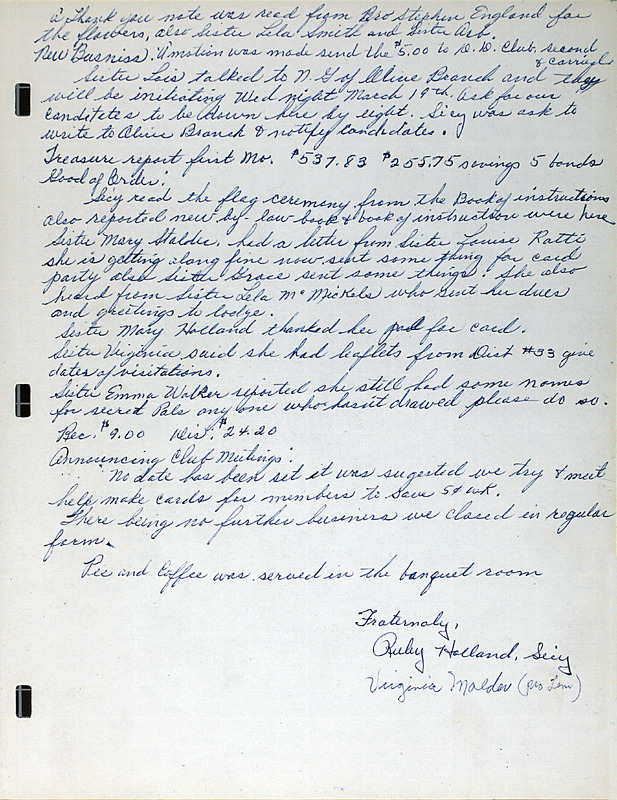 A Thank you note was read from Bro Stephen England for
the flowers, also Sister Lela Smith and Sister Arb.
New Busniss: A motion was made send the $5.00 to D.D. Club, second
& carried
Sister Lois talked to N.G of Olive Branch and they
will be initiating Wed night March 19th. Ask for our
candites to be down here by eight. Secy was ask to
write to Olive Branch & notify candidates.
Treasure report first Mo. $537.83 $255.75 savings 5 bonds
Good of Order:
Secy read the flag ceremony from the Book of instructions
also reported new by-law book & book of instruction were here
Sister Mary Halder. had a letter from Sister Louise Ratti
she is getting along fine now sent some thing for card
party also Sister Grace sent some things. She also
heard from Sister Lela McMickels who sent her dues
and greetings to lodge.
Sister Mary Holland thanked her pal for card.
Sister Virginia said she had leaflets from Dist #33 give
dates of visitations.
Sister Emma Walker reported she still had some names
for secret Pals any one who hasn't drawed please do so.
Rec. $9.00 Dis. $24.20
Announcing Club Meetings:
No date has been set it was sugested we try & meet
help make cards for members to save 5¢ wk.
There being no further business we closed in regular
form.
Pie and Coffee was served in the banquet room
Fraternaly,
Ruby Holland, Secy
Virginia Malder (pro Tem)